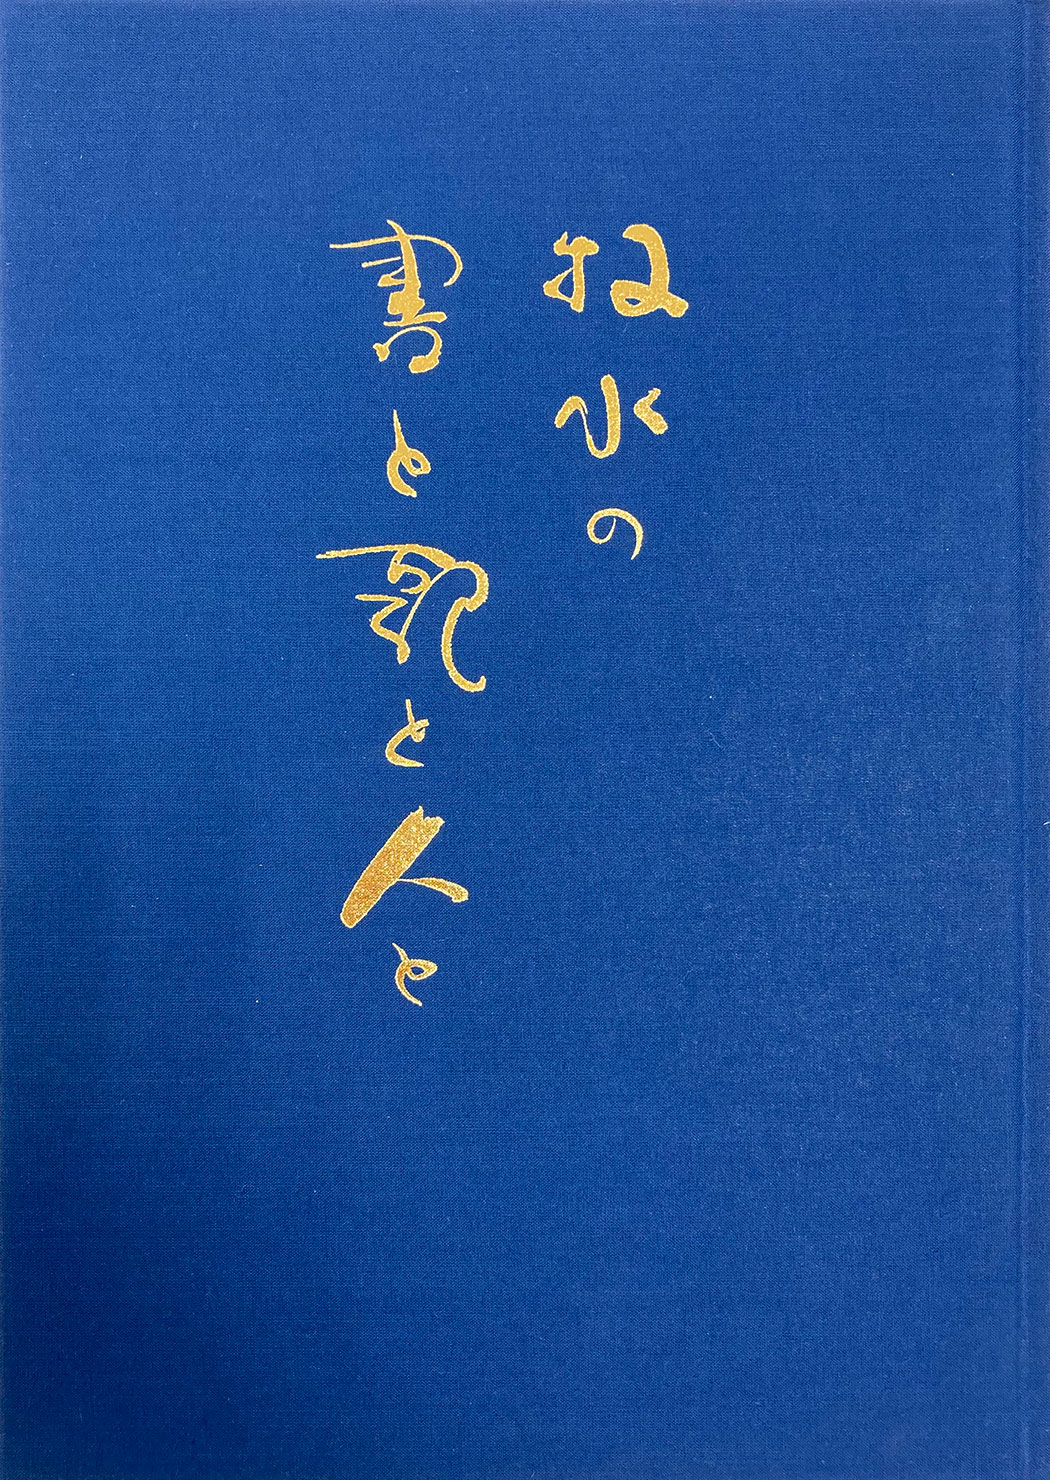 牧水の
書と歌と人と